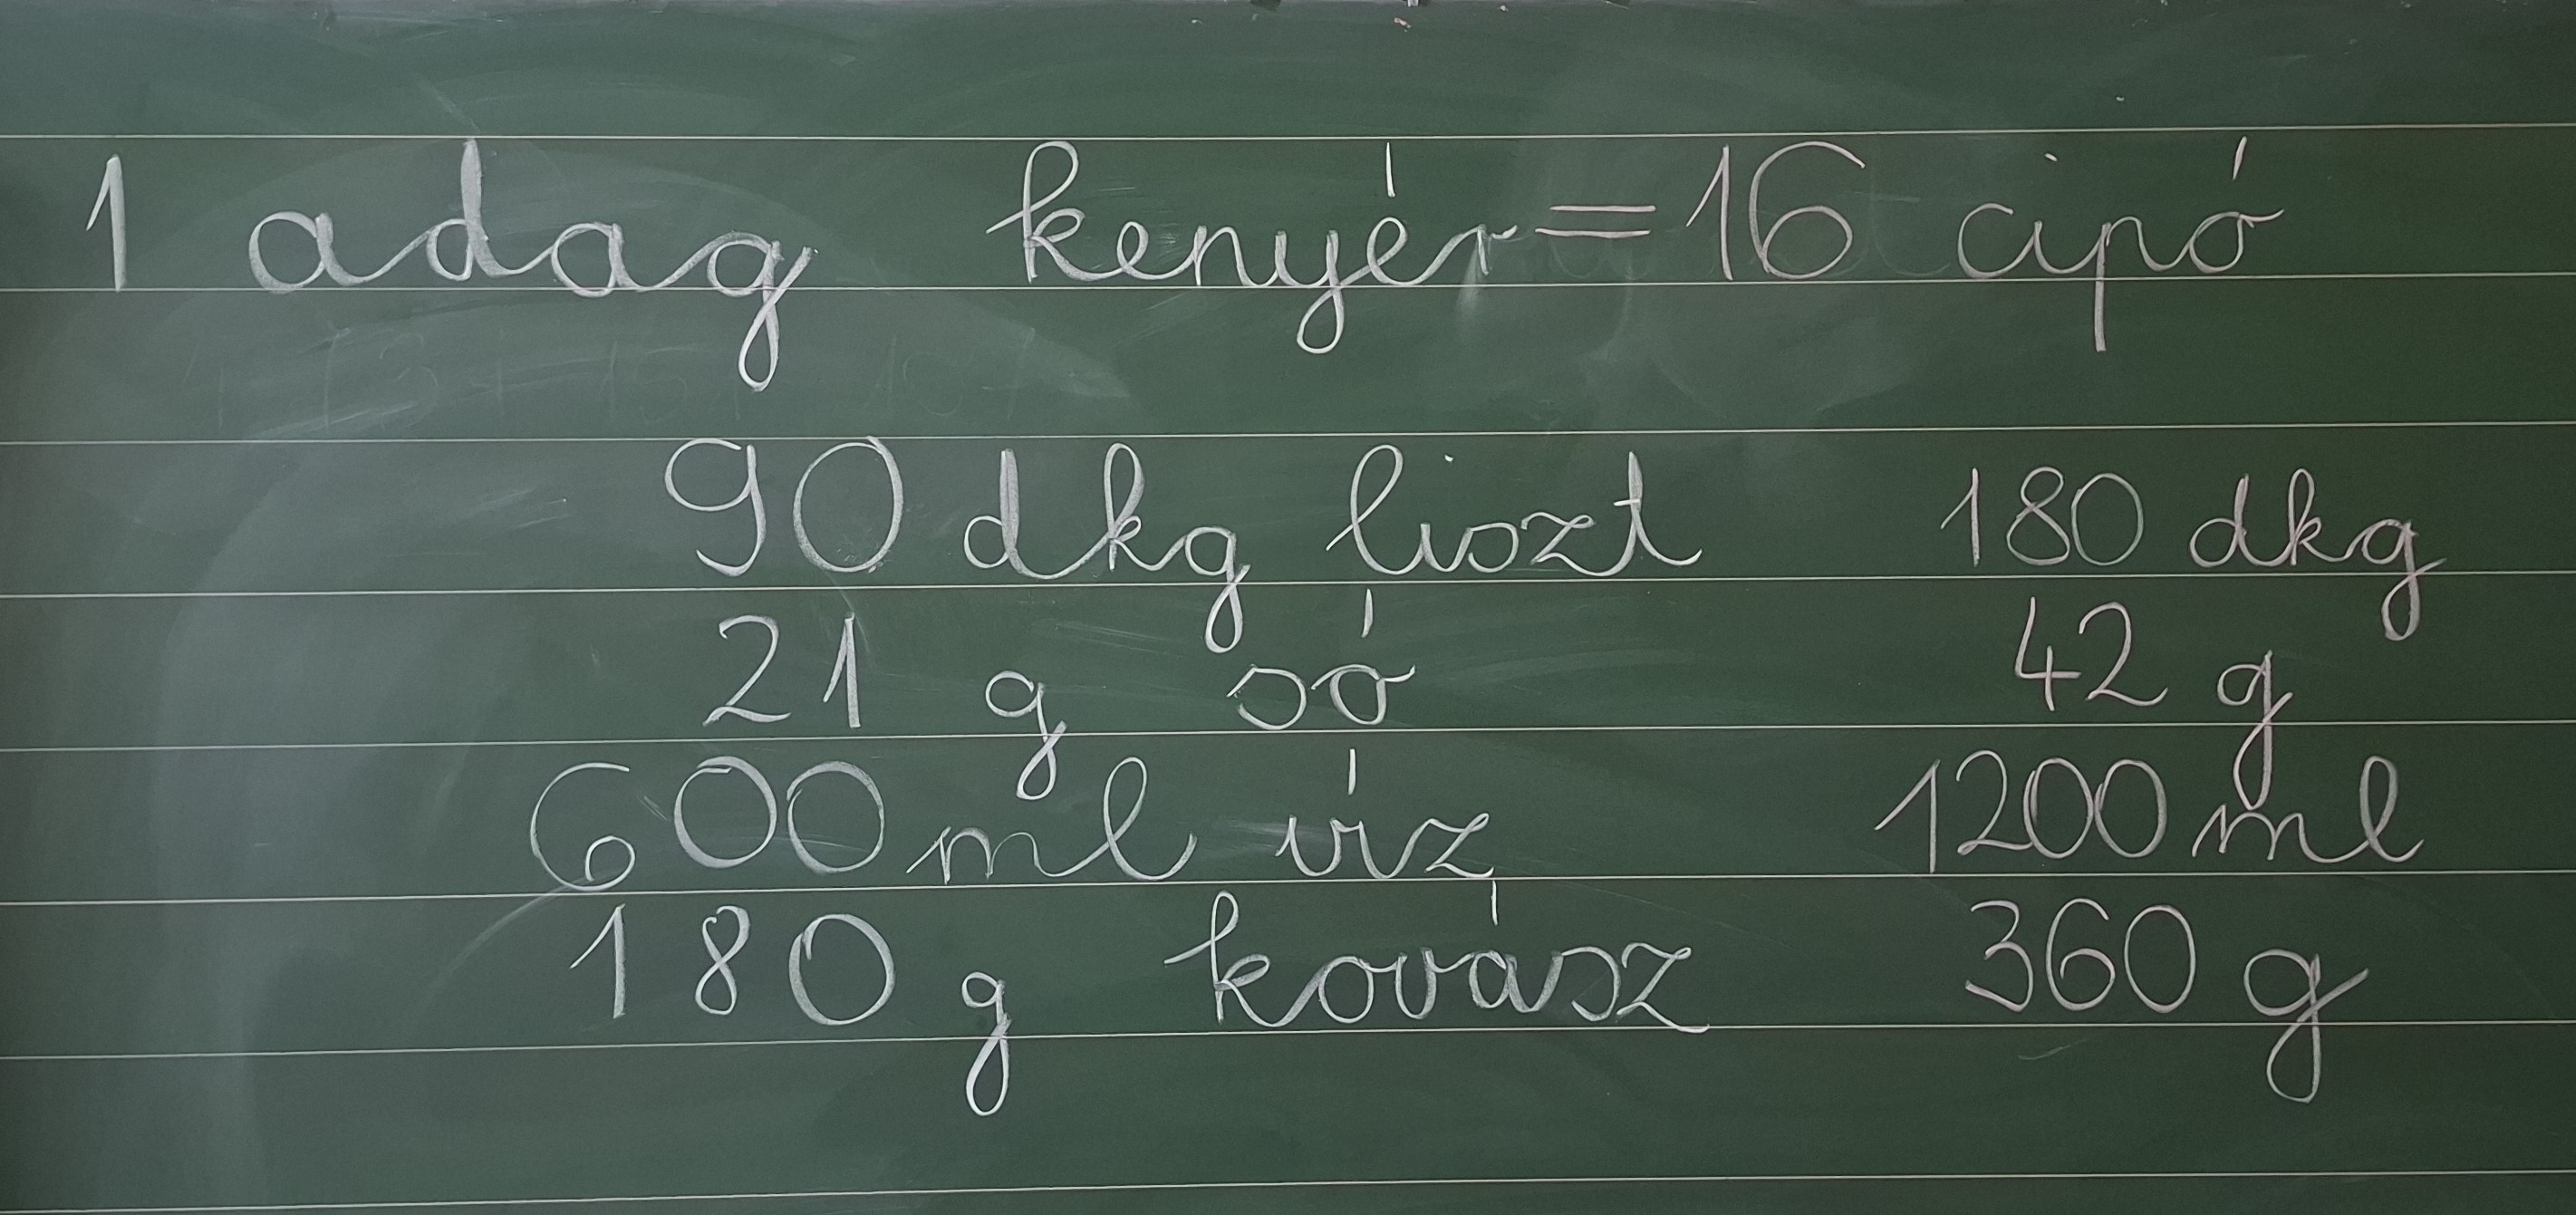 1 adag kenyér = 16 cipó
90 dkg liszt 180 dkg
21 g só 42 g
600 ml víz 1200 ml
180 g kovász 360 g